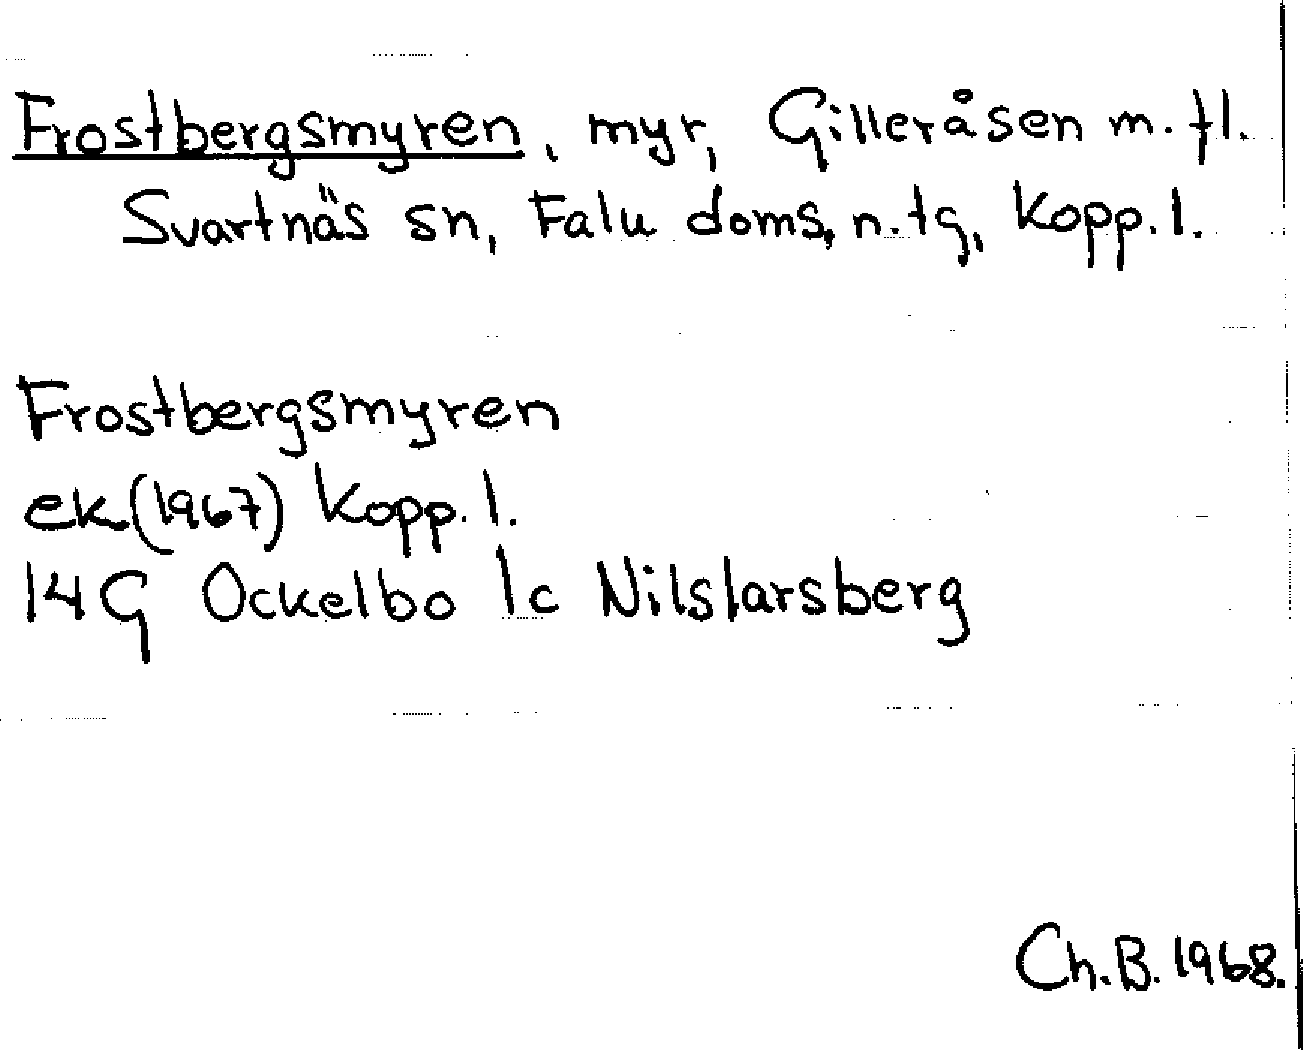 Frostbergsmyren, myr, Gilleråsen m.fl.
Svartnäs sn, Falu doms, n.tg, Kopp.l.
Frostbergsmyren
ek(1967) Kopp.l.
14G Ockelbo 1c Nilslarsberg
Ch.B. 1968.